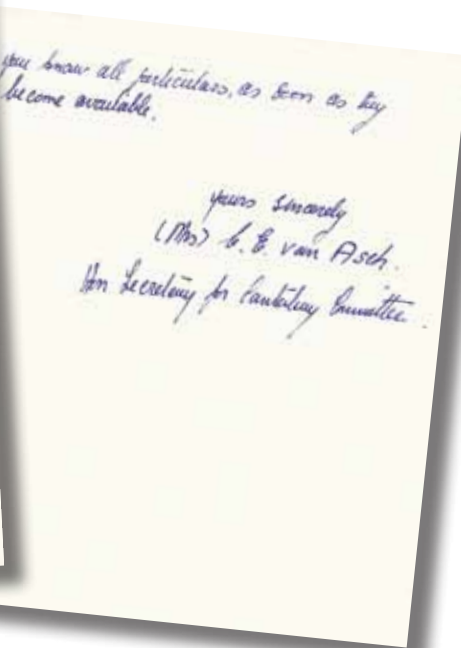 you know all particulars, as soon as they
become available.
yours sincerely
(Mrs) C. E. van Asch.
Hon Secretary for Canterbury Committee.